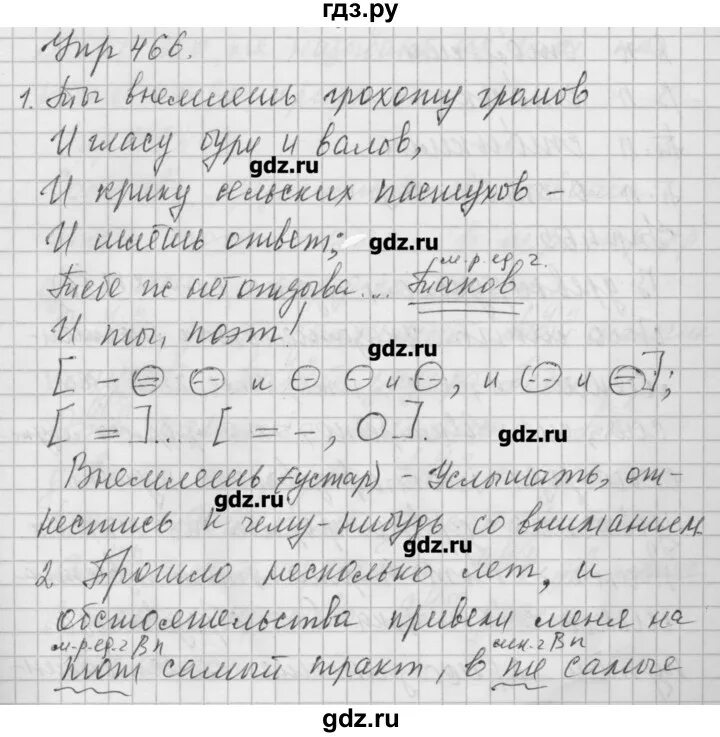 гдз.ру
Упр 466.
1. Ты внемлешь грохоту громов
И гласу бури и валов,
gdz.ru
И крику сельских пастухов –
И шлёшь ответ;
gdz.ru
м.р.ед.ч.
Тебе ж нет отзыва... Таков
И ты, поэт!
gdz.ru
[ – = и , и и ];
[ = ]... [ = –, О ].
gdz.ru
Внемлешь (устар) - Услышать, от-
gdz.ru
нестись к чему-нибудь со вниманием
gdz.ru
2 Прошло несколько лет, и
обстоятельства привели меня на
м.р.ед.ч Вп мн.ч Вп
тот самый тракт, в те самые
gdz.ru